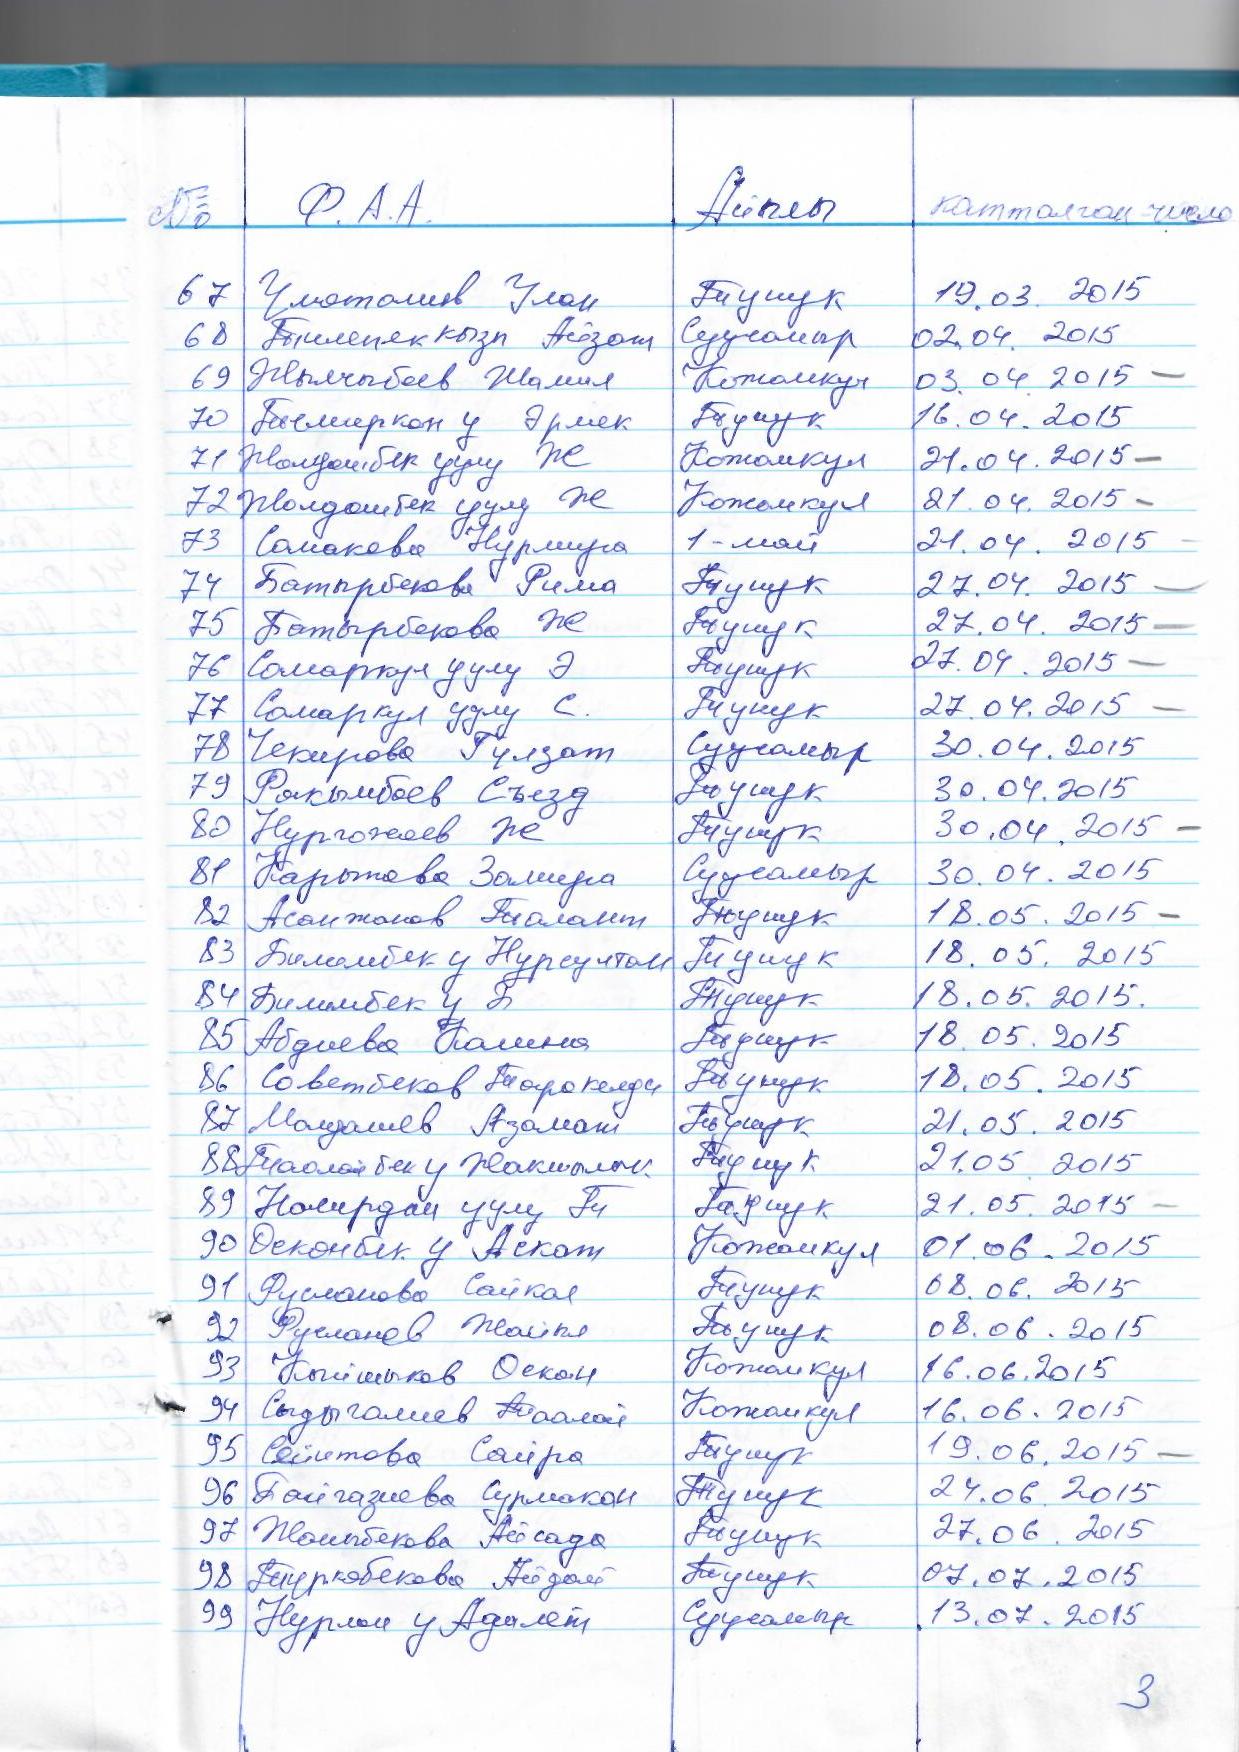 № Ф.А.А. Айылы катталган число
67 Уматалиев Улан Тунук 19.03. 2015
68 кызы Айзат Суусамыр 02.04. 2015
69 Жылчыбаев Жамил Кожомкул 03.04.2015 —
70 у Эрмек Тунук 16.04.2015
71 Жолдошбек уулу Ж Кожомкул 21.04.2015 —
72 Жолдошбек уулу Ж Кожомкул 21.04.2015 -
73 Самакова Нурмира 1-май 21.04. 2015 -
74 Батырбекова Рима Тунук 27.04. 2015 —
75 Батырбекова Ж Тунук 27.04. 2015 —
76 Самаркул уулу Э Тунук 27.04.2015 —
77 Самаркул уулу С. Тунук 27.04.2015 —
78 Чекирова Гулзат Суусамыр 30.04.2015
79 Ракымбаев Съезд Тунук 30.04.2015
80 Нургожоев Ж Тунук 30.04.2015 —
81 Карыпова Замира Суусамыр 30.04.2015
82 Асанжанов Таалант Тунук 18.05.2015 -
83 Билимбек у Нурсултан Тунук 18.05. 2015
84 Билимбек у Б Тунук 18.05.2015.
85 Абдиева Калима Тунук 18.05.2015
86 Советбеков Таркелди Тунук 18.05.2015
87 Молдалиев Азамат Тунук 21.05.2015
88 Таалайбек у Жакшылык Тунук 21.05 2015
89 Намирдан уулу Тунук 21.05.2015 —
90 Осконбек у Аскат Кожомкул 01.06.2015
91 Русланова Сайкал Тунук 08.06.2015
92 Русланов Тунук 08.06.2015
93 Кыйшыков Оскон Кожомкул 16.06.2015
94 Сыдыгалиев Таалай Кожомкул 16.06.2015
95 Сейитова Сайра Тунук 19.06.2015 —
96 Байгазиева Сурмакан Тунук 24.06.2015
97 Жаныбекова Айсада Тунук 27.06.2015
98 Айдай Тунук 07.07.2015
99 Нурлан у Адилет Суусамыр 13.07.2015
3